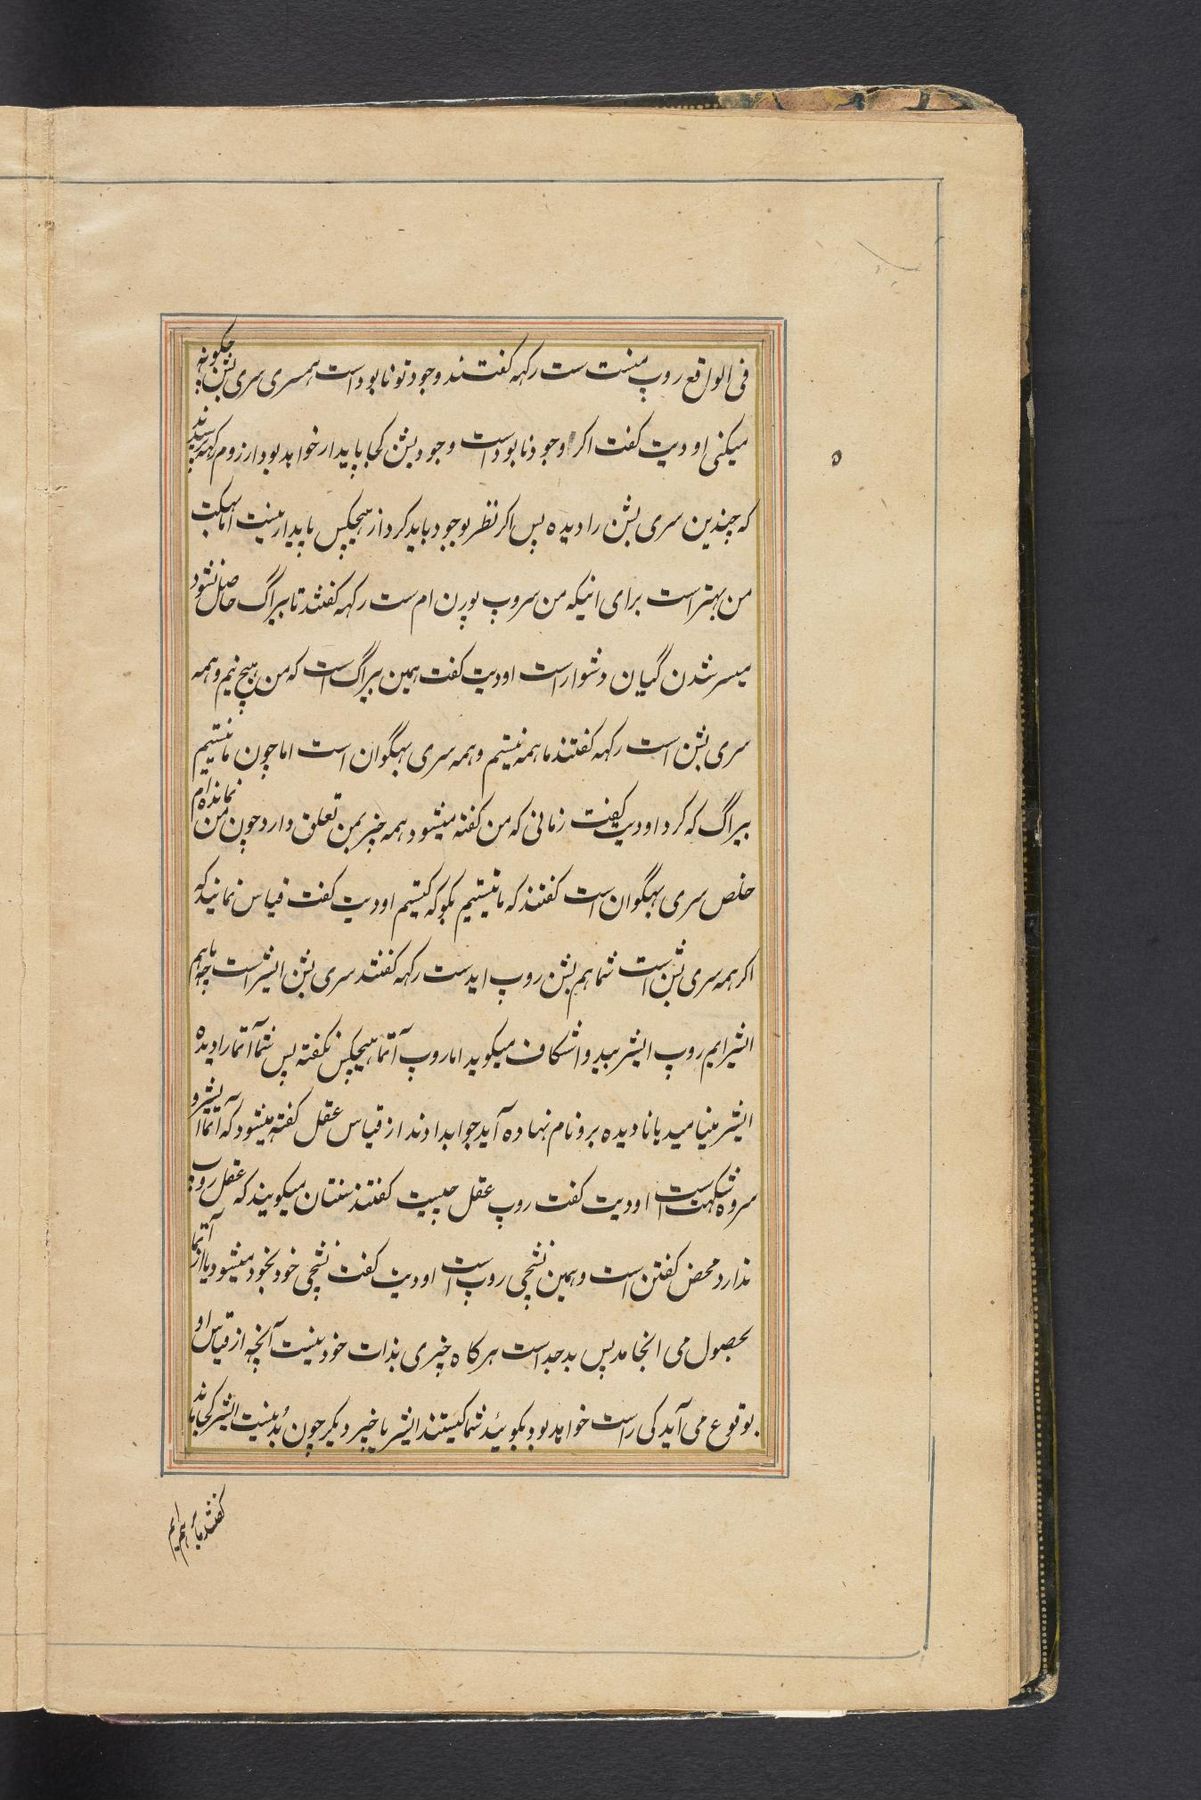 فی الواقع روپ منست ست رکهه کفتند وجود تو نابود است همسری سری بشن چکونه
میکنی اودیت کفت اکر وجود نابود است وجود بشن کجا پایدار خواهد بود از روم رکهه پرسیدند
که چندین سری بشن را دیده پس اکر نظر بوجود باید کرد از هیچکس پایدار نیست اما
من بهتر است برای اینکه من سروپ پورن ام ست رکهه کفتند تا بیراگ حاصل نشود
میسر شدن گیان دشوار است اودیت کفت همین بیراگ است که من هیچ نیم و همه
سری بشن است رکهه کفتند ما همه نیستم و همه سری بهگوان است اما چون ما نیستیم
بیراگ که کرد اودیت کفت زمانی که من کفته میشود همه چیز بمن تعلق دارد چون من نمانده ام
خلص سری بهگوان است کفتند که ما نیستیم بکو که کیستم اودیت کفت قیاس نمایند که
اکر همه سری بشن است شما هم بشن روپ اید ست رکهه کفتند سری بشن ایشر است چه ما هم
ایشر ایم روپ ایشر بید واشکاف میکوید اما روپ آتما هیچکس نکفته پس شما آتما را دیده
ایشر مینامید یا نادیده برو نام نهاده آید جواب دادند از قیاس عقل کفته میشود که آتما ایشر و
سروه شکتست اودیت کفت روپ عقل چیست کفتند سنتان میکویند که عقل روپ
ندارد محض کفتن است و همین نشچی روپ است اودیت کفت نشچی خود بخود میشود یا از آتما
بحصول می انجامد پس بد جداست هرکاه چیزی بذات خود نیست آنچه از قیاس او
بوقوع می آید کی راست خواهد بود بکوئید شما کیستند ایشر یا چیز دیکر چون بد نیست ایشر کجا ماند
کفتند ما برهم ایم